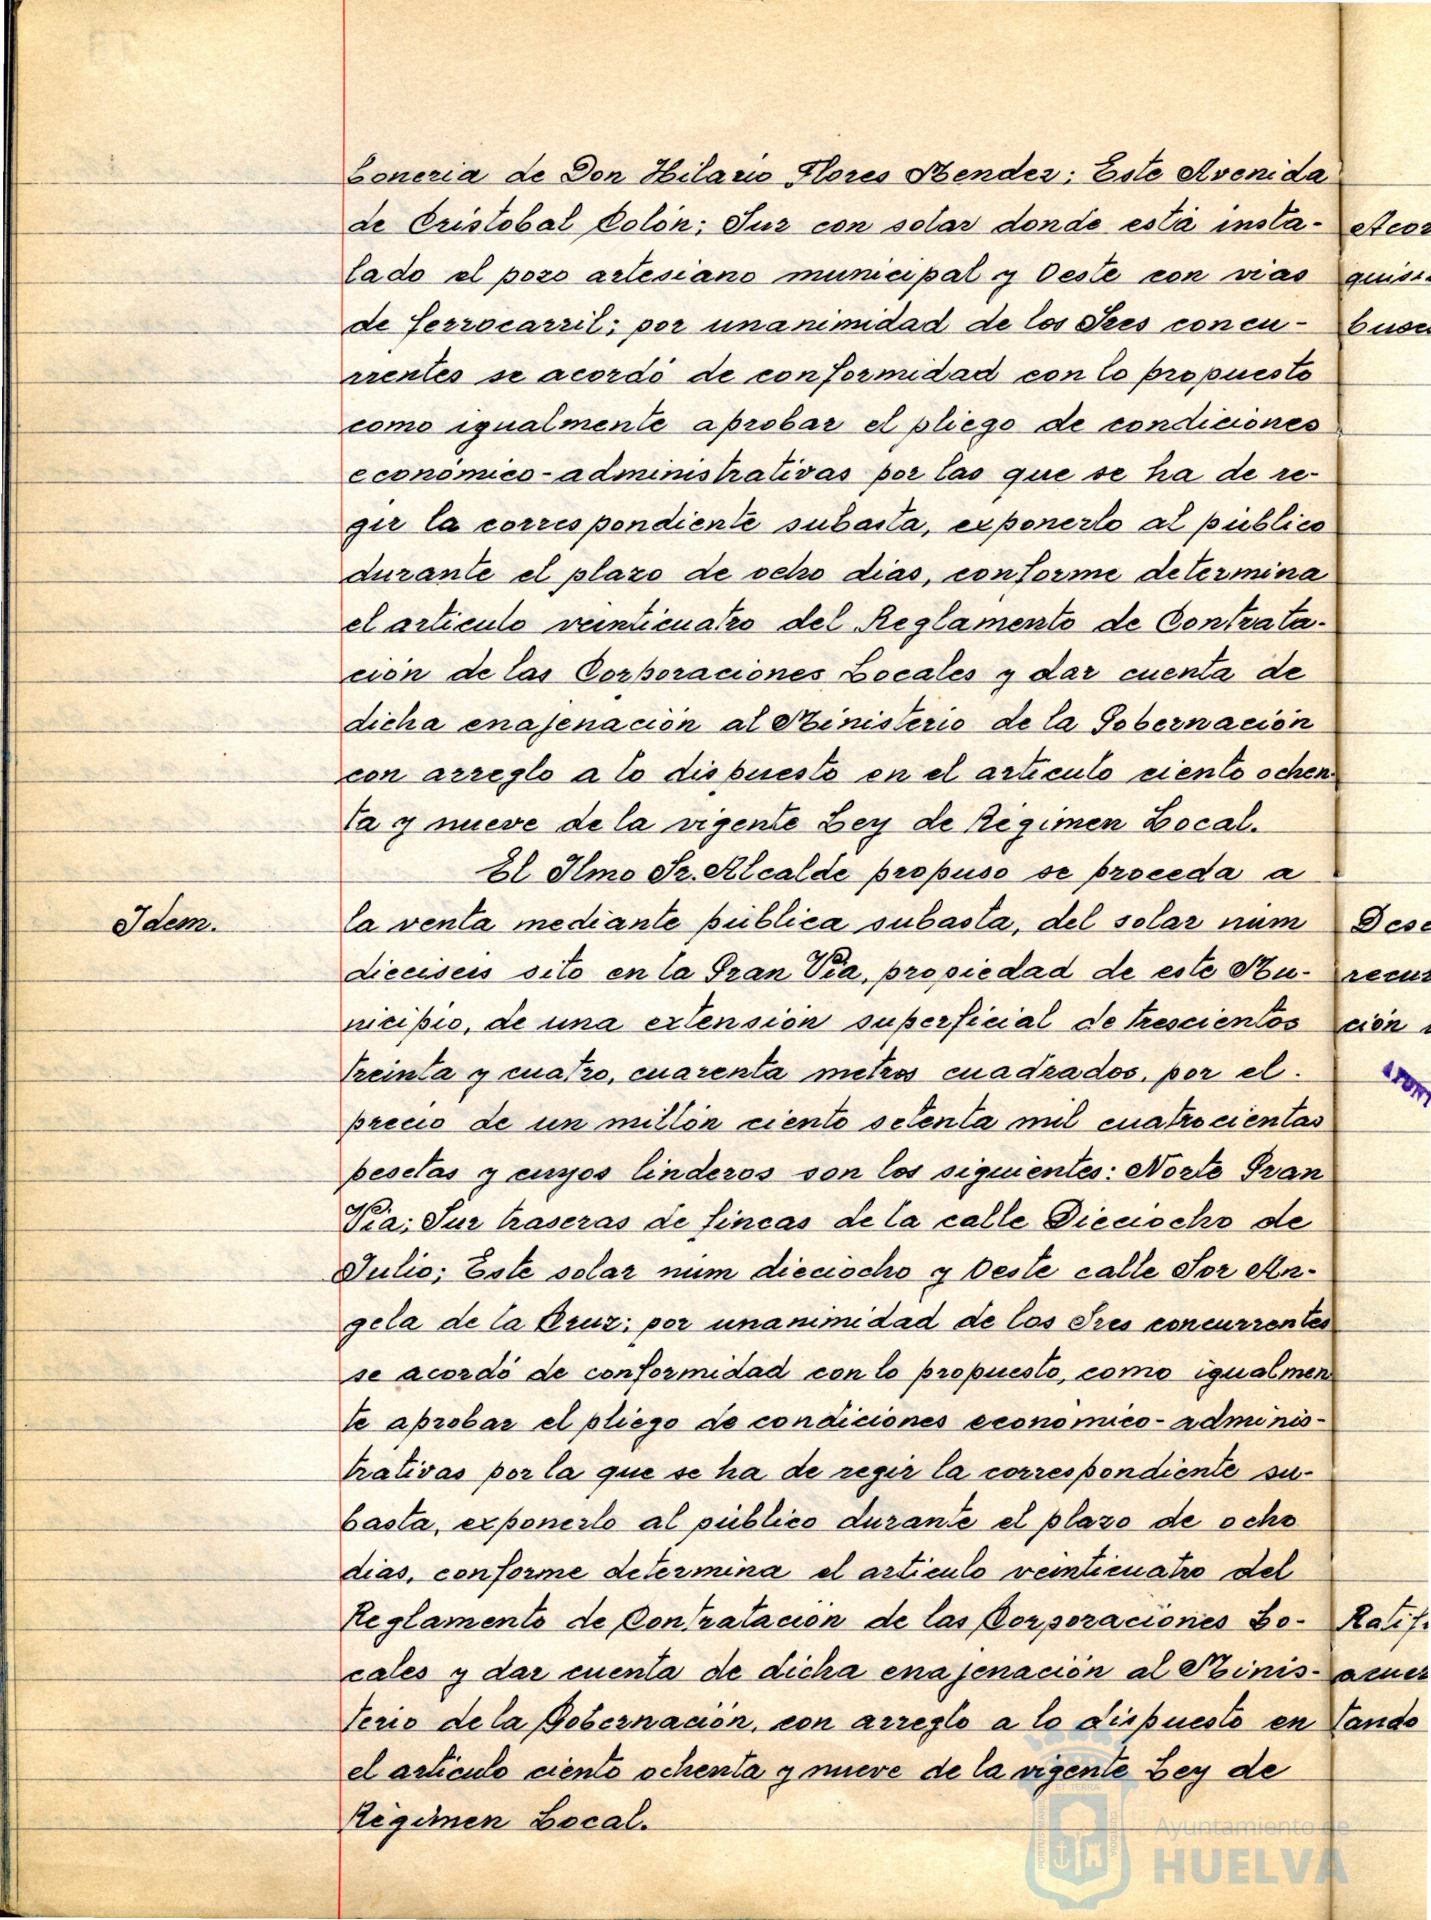 boneria de Don Hilario Flores Mendez; Este Avenida
de Cristobal Colón; Sur con solar donde está insta-
lado el pozo artesiano municipal y Oeste con vias
de ferrocarril; por unanimidad de los Sres concu-
rrentes se acordó de conformidad con lo propuesto
como igualmente aprobar el pliego de condiciones
económico-administrativas por las que se ha de re-
gir la correspondiente subasta, exponerlo al público
durante el plazo de ocho dias, conforme determina
el articulo veinticuatro del Reglamento de Contrata-
ción de las Corporaciones Locales y dar cuenta de
dicha enajenación al Ministerio de la Gobernación
con arreglo a lo dispuesto en el articulo ciento ochen-
ta y nueve de la vigente Ley de Régimen Local.
El Ilmo Sr. Alcalde propuso se proceda a
Idem.
la venta mediante pública subasta, del solar núm
dieciseis sito en la Gran Via, propiedad de este Mu-
nicipio, de una extensión superficial de trescientos
treinta y cuatro, cuarenta metros cuadrados, por el
precio de un millón ciento setenta mil cuatrocientas
pesetas y cuyos linderos son los siguientes: Norte Gran
Via; Sur traseras de fincas de la calle Dieciocho de
Julio; Este solar núm dieciocho y Oeste calle Sor An-
gela de la Cruz; por unanimidad de los Sres concurrentes
se acordó de conformidad con lo propuesto, como igualmen
te aprobar el pliego de condiciones económico-adminis-
trativas por la que se ha de regir la correspondiente su-
basta, exponerlo al público durante el plazo de ocho
dias, conforme determina el articulo veinticuatro del
Reglamento de Contratación de las Corporaciones Lo-
cales y dar cuenta de dicha enajenación al Minis-
terio de la Gobernación, con arreglo a lo dispuesto en
el articulo ciento ochenta y nueve de la vigente Ley de
Régimen Local.
Acor
recur
ción
Ratif
tando
Ayuntamiento de
HUELVA